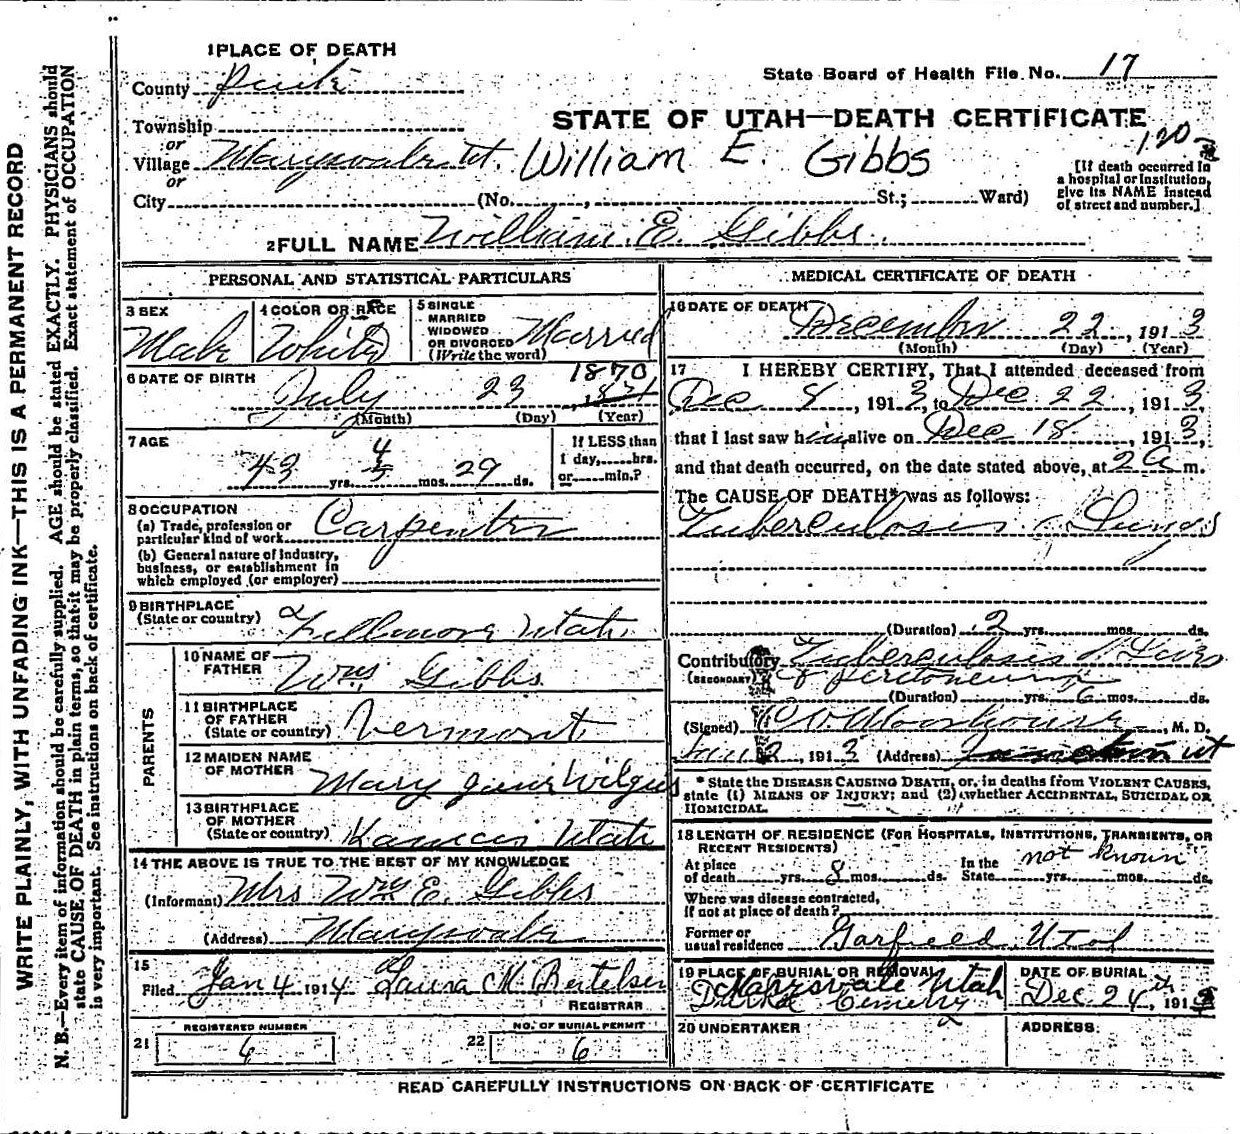 WRITE PLAINLY, WITH UNFADING INK—THIS IS A PERMANENT RECORD
N. B.—Every item of information should be carefully supplied. AGE should be stated EXACTLY. PHYSICIANS should
state CAUSE OF DEATH in plain terms, so that it may be properly classified. Exact statement of OCCUPATION
is very important. See instructions on back of certificate.
1 PLACE OF DEATH
County
State Board of Health File No. 17
Township
STATE OF UTAH—DEATH CERTIFICATE
or
Village Marysvale Ut. William E. Gibbs
120
or
City (No. , St.; Ward)
[If death occurred in
a hospital or institution,
give its NAME instead
of street and number.]
2 FULL NAME William E. Gibbs
PERSONAL AND STATISTICAL PARTICULARS
3 SEX
Male
4 COLOR OR RACE
White
5 SINGLE
MARRIED
WIDOWED
OR DIVORCED
(Write the word)
Married
6 DATE OF BIRTH
July 23 1870
(Month) (Day) (Year)
7 AGE
43 yrs. 4 mos. 29 ds.
If LESS than
1 day, hrs.
or min.?
8 OCCUPATION
(a) Trade, profession or
particular kind of work Carpenter
(b) General nature of industry,
business, or establishment in
which employed (or employer)
9 BIRTHPLACE
(State or country) Fillmore Utah.
PARENTS
10 NAME OF
FATHER Wm Gibbs
11 BIRTHPLACE
OF FATHER
(State or country) Vermont
12 MAIDEN NAME
OF MOTHER Mary Jane Wilgus
13 BIRTHPLACE
OF MOTHER
(State or country) Utah
14 THE ABOVE IS TRUE TO THE BEST OF MY KNOWLEDGE
(Informant) Mrs Wm E. Gibbs
(Address) Marysvale
15
Filed Jan 4 1914 Laura M Bertelsen
REGISTRAR
REGISTERED NUMBER
21 6
NO. OF BURIAL PERMIT
22 6
MEDICAL CERTIFICATE OF DEATH
16 DATE OF DEATH
December 22, 1913
(Month) (Day) (Year)
17 I HEREBY CERTIFY, That I attended deceased from
Dec 8, 1913, to Dec 22, 1913,
that I last saw him alive on Dec 18, 1913,
and that death occurred, on the date stated above, at 2 a m.
The CAUSE OF DEATH* was as follows:
Tuberculosis Lungs
(Duration) 2 yrs. mos. ds.
Contributory Tuberculosis
(SECONDARY) & peritoneum
(Duration) yrs. 6 mos. ds.
(Signed) M. D.
2, 1913 (Address) Junction Ut
* State the DISEASE CAUSING DEATH, or, in deaths from VIOLENT CAUSES,
state (1) MEANS OF INJURY; and (2) whether ACCIDENTAL, SUICIDAL OR
HOMICIDAL.
18 LENGTH OF RESIDENCE (FOR HOSPITALS, INSTITUTIONS, TRANSIENTS, OR
RECENT RESIDENTS)
At place
of death yrs. 8 mos. ds.
In the
State not known yrs. mos. ds.
Where was disease contracted,
if not at place of death?
Former or
usual residence Garfield Utah
19 PLACE OF BURIAL OR REMOVAL
Marysvale Utah
DATE OF BURIAL
Dec 24th, 191
20 UNDERTAKER
ADDRESS
READ CAREFULLY INSTRUCTIONS ON BACK OF CERTIFICATE